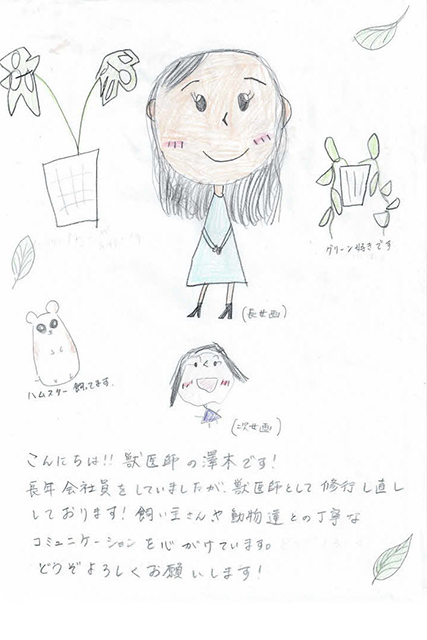 グリーン好きです
(長女画)
ハムスター飼ってます.
(次女画)
こんにちは!! 獣医師の澤木です!
長年会社員をしていましたが、獣医師として修行し直し
しております! 飼い主さんや動物達との丁寧な
コミュニケーションを心がけています。
どうぞよろしくお願いします!